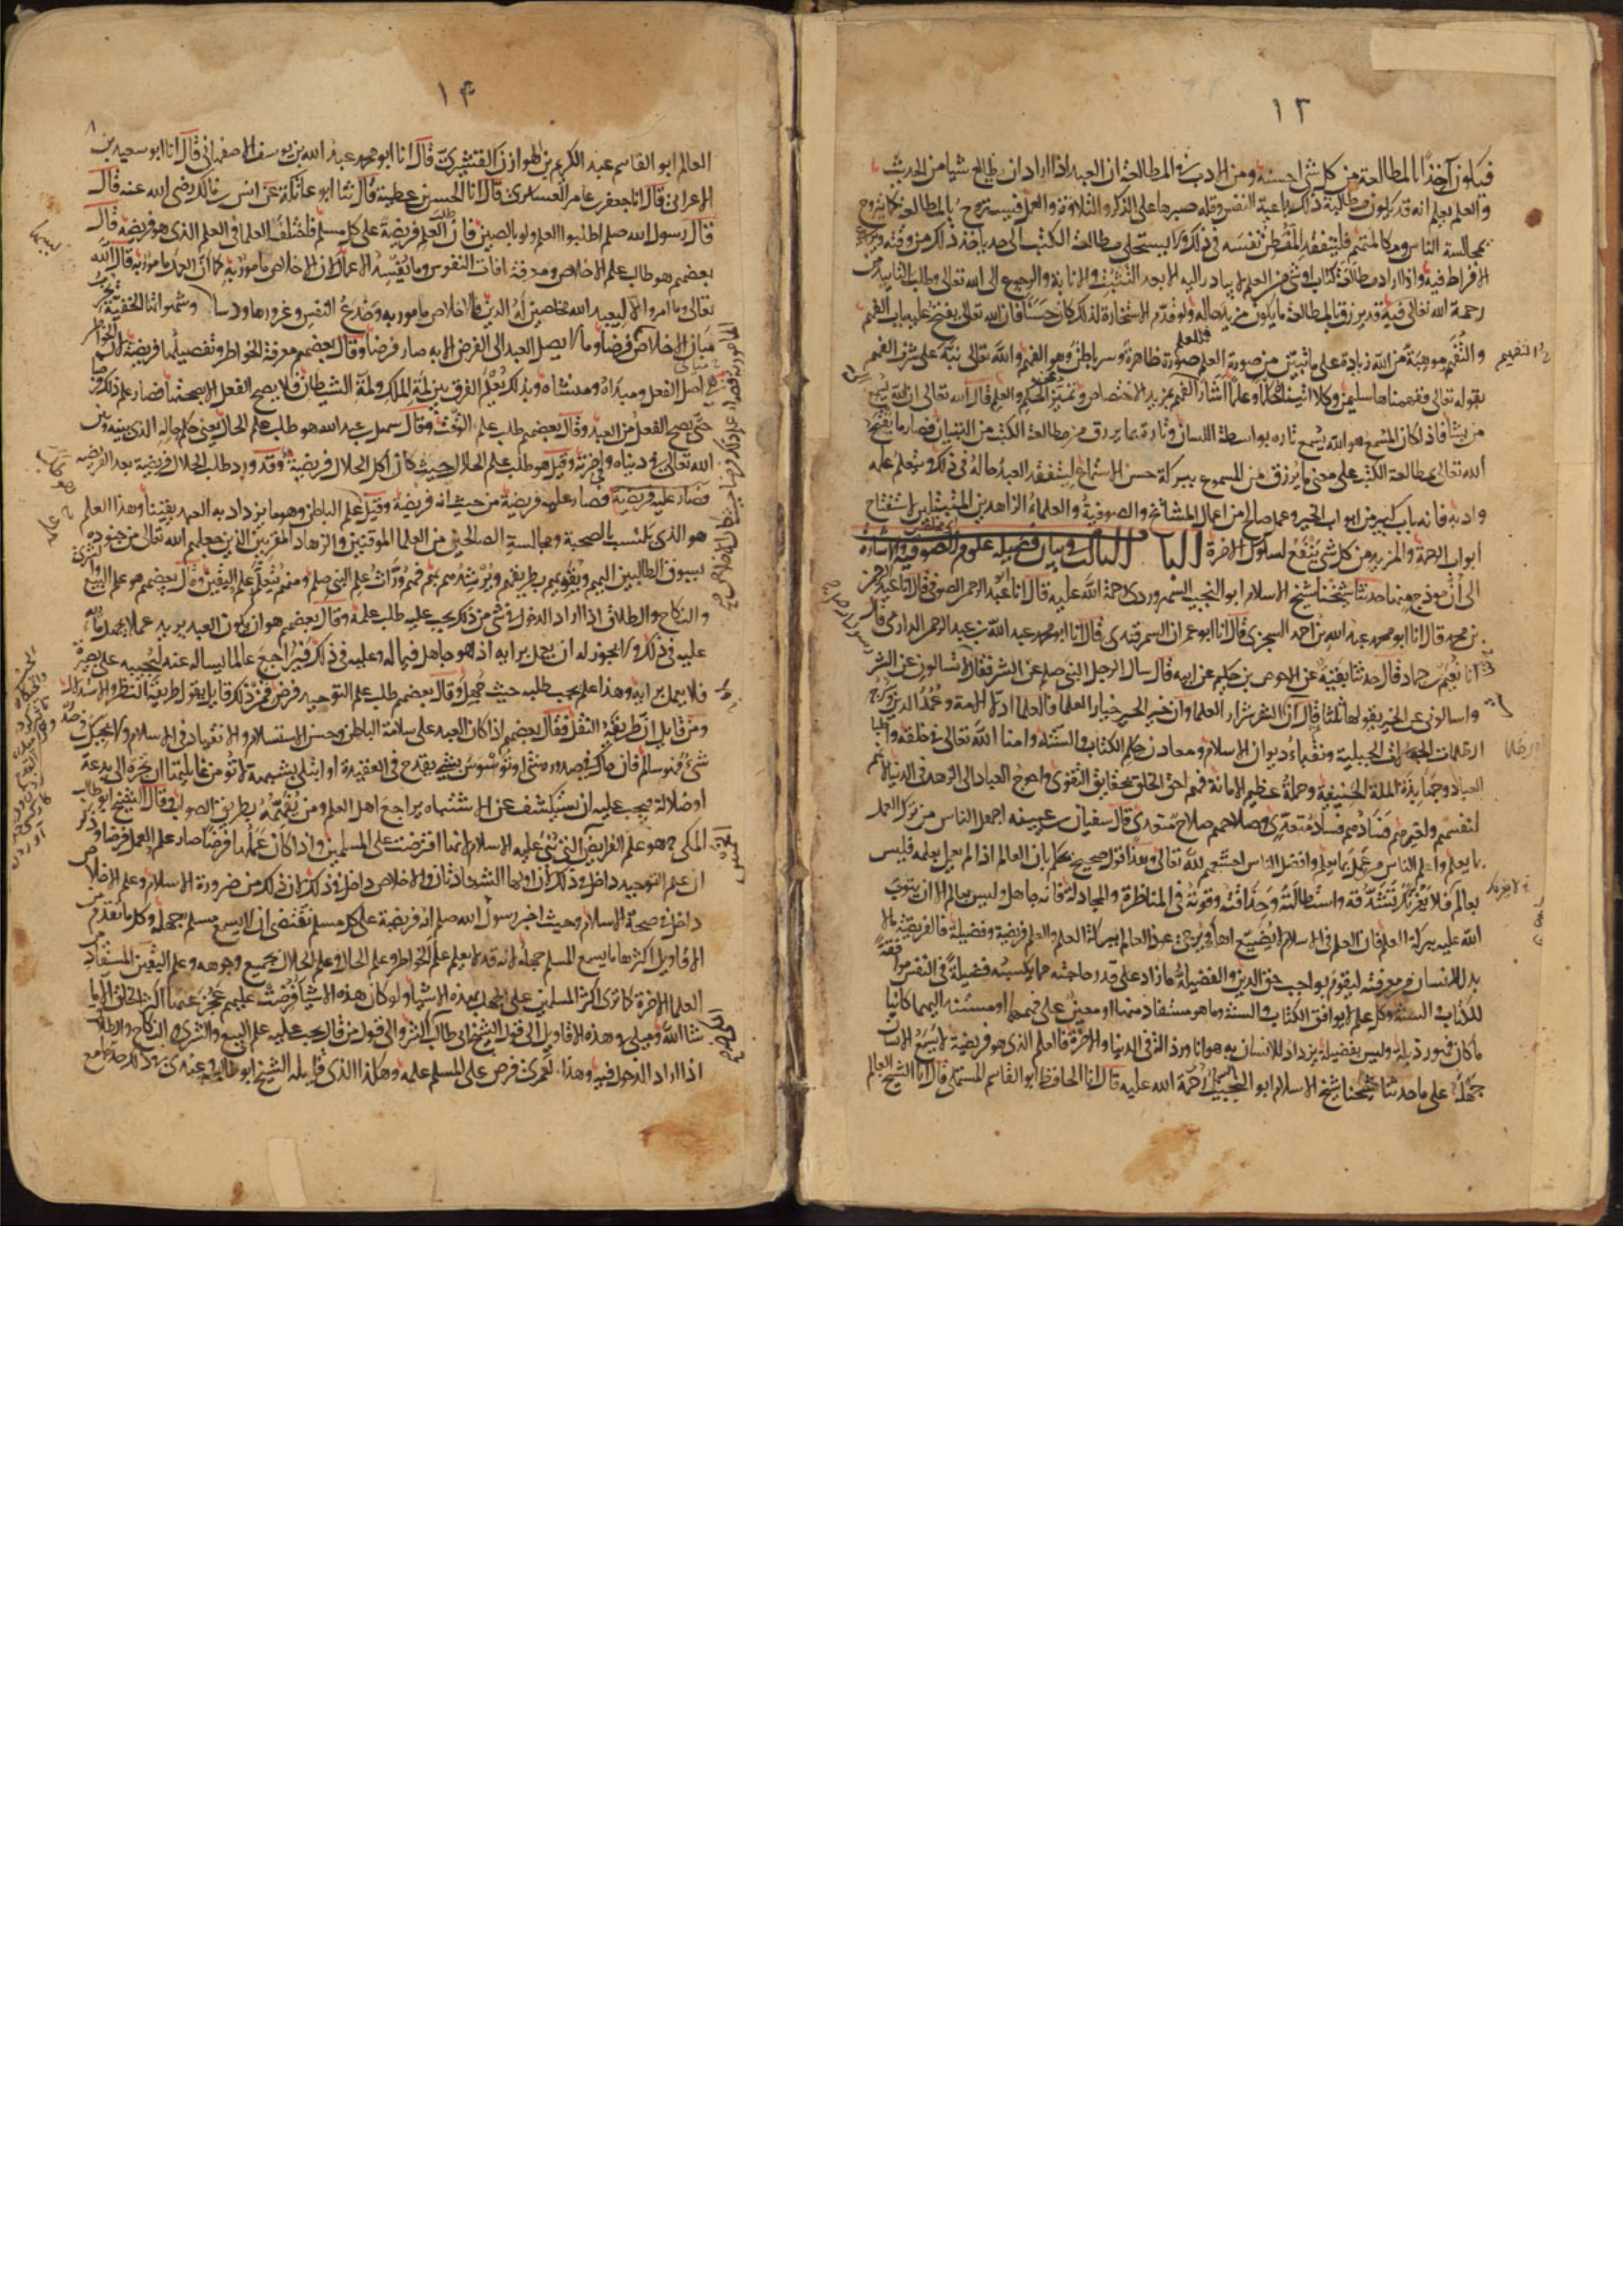 ١٣
فيكون آخذا بالمطالعة من كل شي احسنه ومن الادب في المطالعة ان العبد اذا اراد ان يطالع شيا من الحديث
والعلم يعلم انه قد يكون مطالبة ذلك داعية النفس وقلة صبرها على الذكر والتلاوة والعمل فيستروح بالمطالعة كما يتروح
بمجالسة الناس ومكالمتهم فليتفقد الفطن نفسه في ذلك ولا يستحلي مطالعة الكتب الى حد ياخذ ذلك من وقته
الافراط فيه واذا اراد مطالعة كتاب او شي من العلم لا يبادر اليه الا بعد التثبت والانابة والرجوع الى الله تعالى وطلب التاييد من
رحمة الله تعالى فيه قد يرزق بالمطالعة ما يكون مزيد حاله ولو قدم الاستخارة لذلك كان حسنا فان الله تعالى يفتح عليه باب الفهم
والتفهيم موهبة من الله زيادة على ما تبين من صورة العلم فللعلم صورة ظاهرة وسر باطن وهو الفهم والله تعالى نبه على شرف الفهم
بقوله تعالى ففهمناها سليمن وكلا اتينا حكما وعلما اشار الى الفهم بمزيد الاختصاص وتميز عن الحكم والعلم قال الله تعالى ان الله يسمع
من يشا فاذا كان المسمع هو الله يسمع تاره بواسطة اللسان وتارة بما يرزق من مطالعة الكتب من التبيان فصار ما يفتح
الله تعالى بمطالعة الكتب على معنى ما يرزق من المسموع ببركة حسن الاستماع ليتفقد العبد حاله في ذلك ويتعلم علمه
وادبه فانه باب كبير من ابواب الخير وعمل صالح من اعمال المشائخ والصوفية والعلماء الزاهدين المتبتلين لاستفتاح
ابواب الرحمة والمزيد من كل شي ينفع لسلوك الاخرة الباب الثالث في بيان فضيلة علوم الصوفية والاشارة
الى انموذج منها حدثنا شيخنا شيخ الاسلام ابو النجيب السهروردي رحمة الله عليه قال انا عبد الرحمن الصوفي قال انا عبد الرحمن
بن محمد قال انا ابو محمد عبد الله بن احمد السجزي قال انا ابو عمران السمرقندي قال انا ابو محمد عبد الله بن عبد الرحمن الدارمي قال
انا نعيم بن حماد قال حدثنا بقية عن الاحوص بن حكيم عن ابيه قال سال الرجل النبي صلعم عن الشر فقال لا تسالوني عن الشر
واسالوني عن الخير يقولها ثلثا قال ان شر الشر شرار العلما وان خير الخير خيار العلما فالعلما ادلا الامة وعمد الدين وسرج
ظلمات الجهالات الجبلية ونقباء ديوان الاسلام ومعادن حكم الكتاب والسنة وامنا الله تعالى في خلقه واطبا
العباد وجهابذة الملة الحنيفية وحملة عظيم الامانة فهم احق الخلق بحقايق التقوى واحوج العباد الى الزهد في الدنيا لانهم
لنفسهم ولغيرهم ففسادهم فساد متعدي وصلاحهم صلاح متعدي قال سفيان بن عيينه اجهل الناس من ترك العمل
بما يعلم واعلم الناس من عمل بما يعلم وافضل الناس اخشعهم لله تعالى وهذا قول صحيح يحكم بان العالم اذا لم يعمل بعلمه فليس
بعالم فلا يغرنك تشدقه واستطالته وحذاقته وقوته في المناظرة والمجادلة فانه جاهل وليس بعالم الا ان يتوب
الله عليه ببركة العلم فان العلم في الاسلام لا يضيع اهله ويرجى عود العالم ببركة العلم والعلم فريضة وفضيلة فالفريضة ما لا
بد للانسان من معرفته ليقوم بواجب حق الدين والفضيلة ما زاد على قدر حاجته مما يكسبه فضيلة في النفس موافقة
للكتاب والسنة وكل علم لا يوافق الكتاب والسنة وما هو مستفاد منهما او معين على فهمهما او مستند اليهما كائنا
ما كان فهو رذيلة وليس بفضيلة يزداد للانسان به هوانا ورذالة في الدنيا والاخرة فالعلم الذي هو فريضة لا يسع الانسان
جهله على ما حدثنا شيخنا شيخ الاسلام ابو النجيب رحمة الله عليه قال انا الحافظ ابو القاسم المستملي قال انا الشيخ العالم
التفهيم
١٤
العالم ابو القاسم عبد الكريم بن هوازن القشيري قال انا ابو محمد عبد الله بن يوسف الاصفهاني قال انا ابو سعيد بن
الاعرابي قال انا جعفر بن عامر العسكري قال انا الحسن بن عطية قال ثنا ابو عاتكة عن انس بن مالك رضى الله عنه قال
قال رسول الله صلعم اطلبوا العلم ولو بالصين فان طلب العلم فريضة على كل مسلم فاختلف العلما في العلم الذي هو فريضة قال
بعضهم هو طلب علم الاخلاص ومعرفة افات النفوس وما يفسد الاعمال لان الاخلاص مامور به كما ان العمل مامور به قال الله
تعالى وما امروا الا ليعبدوا الله مخلصين له الدين فالاخلاص مامور به وخدع النفس وغرورها ودسا وشهواتها الخفية تخرب
مباني الاخلاص فرضا وما لا يصل العبد الى الفرض الا به صار فرضا وقال بعضهم معرفة الخواطر وتفصيلها فريضة لان الخواطر
هي اصل الفعل ومبداه ومنشاه وبذلك يعلم الفرق بين لمة الملك ولمة الشيطان فلا يصح الفعل الا بصحتها فصار علم ذلك فرضا
حتى يصح الفعل من العبد وقال بعضهم طلب علم الوقت وقال سهل بن عبد الله هو طلب علم الحال يعني حكم حاله الذي بينه وبين
الله تعالى في دنياه واخرته وقيل هو طلب علم الحلال حيث كان اكل الحلال فريضة وقد ورد طلب الحلال فريضة بعد الفريضة
فصار علمه فريضة من حيث انه فريضة وقيل علم الباطن وهو ما يزداد به العبد يقينا وهذا العلم
هو الذي يكتسب بالصحبة ومجالسة الصالحين من العلما الموقنين والزهاد المقربين الذين جعلهم الله تعالى من جنوده
يسوق الطالبين اليهم ويقويهم بطريقهم ويرشدهم بهم فهم وراث علم النبي صلعم ومنهم يتعلم علم اليقين وقال بعضهم هو علم البيع والشرى
والنكاح والطلاق اذا اراد الدخول في شي من ذلك يجب عليه طلب علمه وقال بعضهم هو ان يكون العبد يريد عملا يجهل ما لله
عليه في ذلك ولا يجوز له ان يعمل برايه اذ هو جاهل فيما له وعليه في ذلك فيراجع عالما يساله عنه ليجيبه على بصيرة
فلا يعمل برايه وهذا علم يجب طلبه حيث جهل وقال بعضهم طلب علم التوحيد فرض فمن ذلك قايل يقول طريقه النظر والاستدلال
ومن قايل ان طريقه النقل فقال بعضهم اذا كان العبد على سلامة الباطن وحسن الاستسلام والانقياد في الاسلام ولا يحيك في صدره
شي فهو سالم فان حاك في صدره شي او توسوس بشي يقدح في العقيدة او ابتلي بشبهة لا تومن غايلتها ان تجره الى بدعة
او ضلالة فيجب عليه ان يستكشف عن الاشتباه يراجع اهل العلم ومن يفهمه طريق الصواب وقال الشيخ ابو طالب
المكي هو علم الفرايض التي بني عليه الاسلام لانها افترضت على المسلمين واذا كان عملها فرضا صار علم العمل فرضا وذكر
ان علم التوحيد داخل في ذلك لان اولها الشهادتان والاخلاص داخل في ذلك لان ذلك من ضرورة الاسلام وعلم الاخلاص
داخل في صحة الاسلام وحيث اخبر رسول الله صلعم انه فريضة على كل مسلم تقتضي ان لا يسع مسلم جهله وكل ما تقدم من
الاقاويل اكثرها ما يسع المسلم جهله لانه قد لا يعلم علم الخواطر وعلم الحال وعلم الحلال بجميع وجوهه وعلم اليقين المستفاد من
العلما الاخرة كما ترى اكثر المسلمين على الجهل بهذه الاشيا ولو كان هذه الاشيا فرضت عليهم عجز عنها اكثر الخلق الا ما
شا الله وميلي في هذه الاقاويل الى قول الشيخ ابي طالب اكثر والى قول من قال يجب عليه علم البيع والشرى والنكاح والطلاق
اذا اراد الدخول فيه وهذا لعمري فرض على المسلم علمه وهكذا الذي قاله الشيخ ابو طالب وعندي في ذلك حد جامع